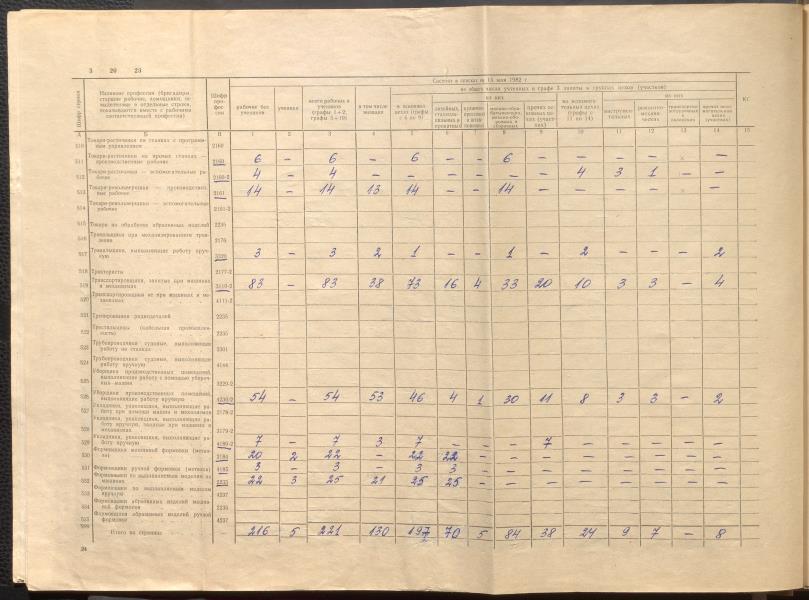 3 20 23
Состоит в списках на 15 мая 1982 г.
из общего числа учтенных в графе 3 заняты в группах цехов (участков)
из них
из них
Шифр строки
Название профессии (бригадиры,
старшие рабочие, помощники, не
выделенные в отдельные строки,
показываются вместе с рабочими
соответствующей профессии)
Шифр
про-
фес-
сии
рабочие без
учеников
ученики
всего рабочих и
учеников
(графы 1+2,
графы 5+10)
в том числе
женщин
в основных
цехах (графы
с 6 по 9)
А Б В 1 2 3 4 5 6 7 8 9 10 11 12 13 14 15
510 Токари-расточники на станках с програм-
мным управлением 2160
511 Токари-расточники на прочих станках —
производственные рабочие 2160 6 – 6 – 6 – – 6 – – – – × –
512 Токари-расточники — вспомогательные ра-
бочие 2160-2 4 – 4 – – – – – – 4 3 1 – –
513 Токари-револьверщики — производствен-
ные рабочие 2161 14 – 14 13 14 – – 14 – – – – × –
514 Токари-револьверщики — вспомогательные
рабочие 2161-2
515 Токари по обработке абразивных изделий 2235
516 Травильщики при механизированном трав-
лении 2176
517 Травильщики, выполняющие работу вруч-
ную 3176 3 – 3 2 1 – – 1 – 2 – – – 2
518 Трактористы 2177-2
519 Транспортировщики, занятые при машинах
и механизмах 3110-2 83 – 83 38 73 16 4 33 20 10 3 3 – 4
520 Транспортировщики не при машинах и ме-
ханизмах 4111-2
521 Тренировщики радиодеталей 2235
522 Тростильщики (кабельная промышлен-
ность) 2235
523 Трубопроводчики судовые, выполняющие
работу на станках 2301
524 Трубопроводчики судовые, выполняющие
работу вручную 4144
525 Уборщики производственных помещений,
выполняющие работу с помощью убороч-
ных машин 3220-2
526 Уборщики производственных помещений,
выполняющие работу вручную 4220-2 54 – 54 53 46 4 1 30 11 8 3 3 – 2
527 Укладчики, упаковщики, выполняющие ра-
боту при помощи машин и механизмов 2178-2
528 Укладчики, упаковщики, выполняющие ра-
боту вручную, занятые при машинах и
механизмах 3179-2
529 Укладчики, упаковщики, выполняющие ра-
боту вручную 4189-2 7 – 7 3 7 – – – 7 – – – – –
530 Формовщики машинной формовки (метал-
ла) 2184 20 2 22 – 22 22 – – – – – – – –
531 Формовщики ручной формовки (металла) 4185 3 – 3 – 3 3 – – – – – – – –
532 Формовщики по выплавляемым моделям на
машинах 2235 22 3 25 21 25 25 – – – – – – – –
533 Формовщики по выплавляемым моделям
вручную 4237
534 Формовщики абразивных изделий машин-
ной формовки 2235
535 Формовщики абразивных изделий ручной
формовки 4237
599 Итого на странице — 216 5 221 130 197 70 5 84 38 24 9 7 – 8
24